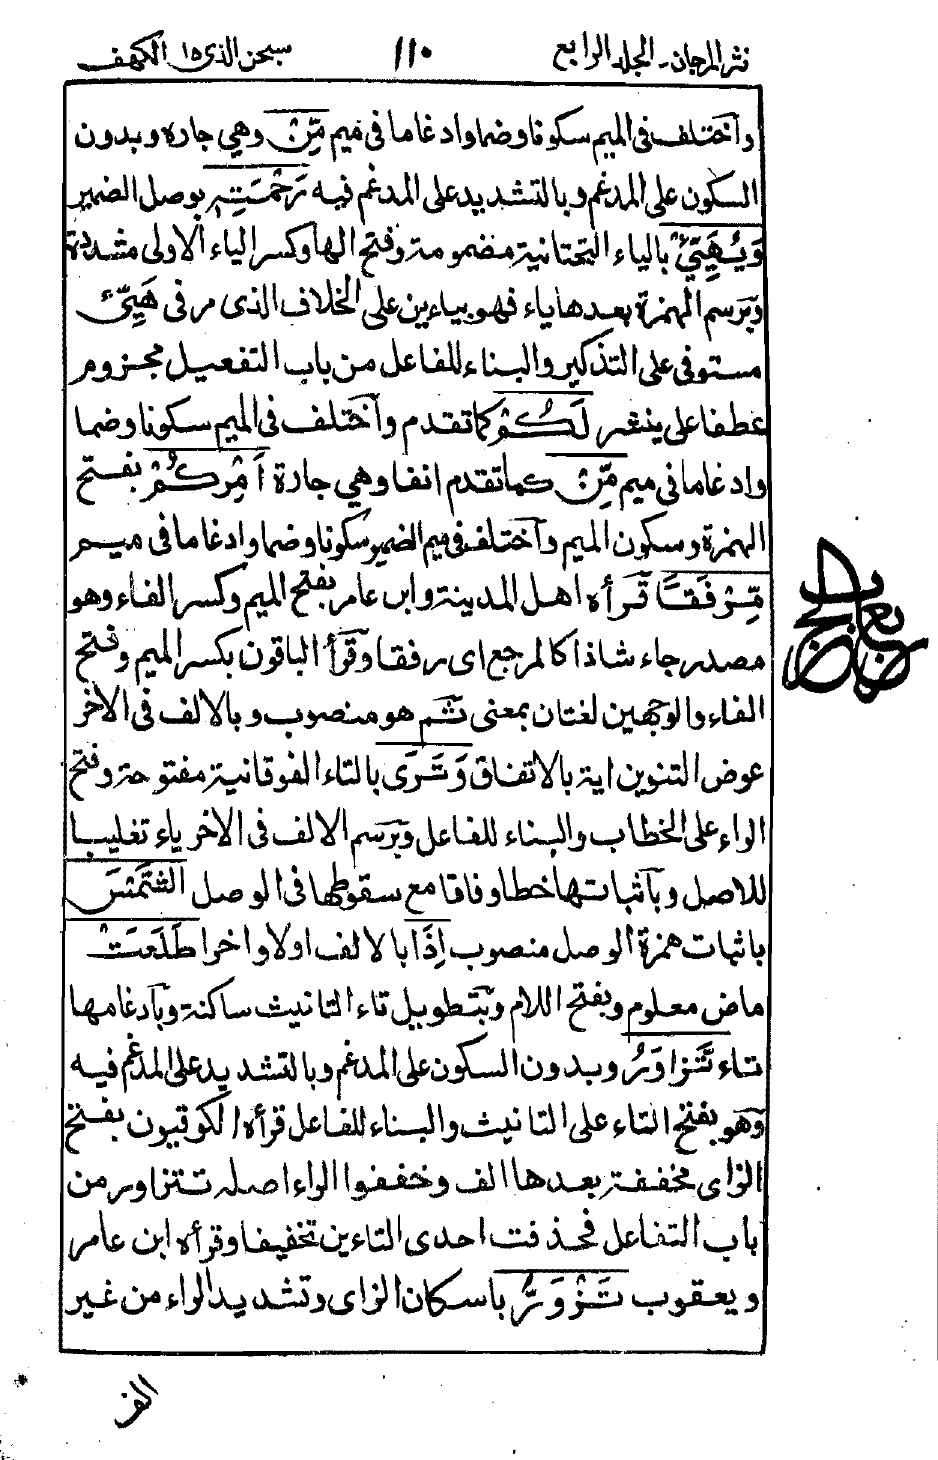 نثر المرجان۔ المجلد الرابع ١١٠ سبحن الذى ١٥ الكهف
واختلف فى الميم سكونا وضما وادغاما فى ميم مِّنْ وهي جاره وبدون
السكون على المدغم وبالتشديد على المدغم فيه رَحْمَتِهِ بوصل الضمير
وَيُهَيِّئْ بالياء التحتانية مضمومة وفتح الها وكسر الياء الاولى مشددة
وبرسم الهمزة بعدها ياء فهو بياءين على الخلاف الذى مر فى هَيِّئْ
مستوفى على التذكير والبناء للفاعل من باب التفعيل مجزوم
عطفا على ينشر لَكُمْ كما تقدم واختلف فى الميم سكونا وضما
وادغاما فى ميم مِّنْ كما تقدم انفا وهي جارة اَمْرِكُمْ بفتح
الهمزة وسكون الميم واختلف فى ميم الضمير سكونا وضما وادغاما فى ميم
مِّرْفَقًا قرأه اهل المدينة وابن عامر بفتح الميم وكسر الفاء وهو
مصدر جاء شاذا كالمرجع اى رفقا وقرأ الباقون بكسر الميم وفتح
الفاء والوجهين لغتان بمعنى ثم هو منصوب وبالالف فى الاخر
عوض التنوين اية بالاتفاق وَتَرَى بالتاء الفوقانية مفتوحة وفتح
الراء على الخطاب والبناء للفاعل وبرسم الالف فى الاخر ياء تغليبا
للاصل وباثباتها خطا وفاقا مع سقوطها فى الوصل الشَّمْسَ
باثبات همزة الوصل منصوب اِذَا بالالف اولا واخرا طَلَعَتْ
ماض معلوم وبفتح اللام وبتطويل تاء التانيث ساكنة وبادغامها
تاء تَّزَاوَرُ وبدون السكون على المدغم وبالتشديد على المدغم فيه
وهو بفتح التاء على التانيث والبناء للفاعل قرأه الكوفيون بفتح
الزاى مخففة بعدها الف وخففوا الراء اصله تتزاور من
باب التفاعل فحذفت احدى التاءين تخفيفا وقرأه ابن عامر
ويعقوب تَزْوَرُّ باسكان الزاى وتشديد الراء من غير
الف